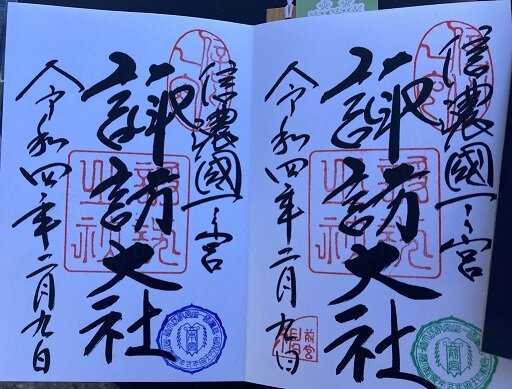 信濃國一之宮
諏訪大社
令和四年二月九日
信濃國一之宮
諏訪大社
令和四年二月九日
前宮